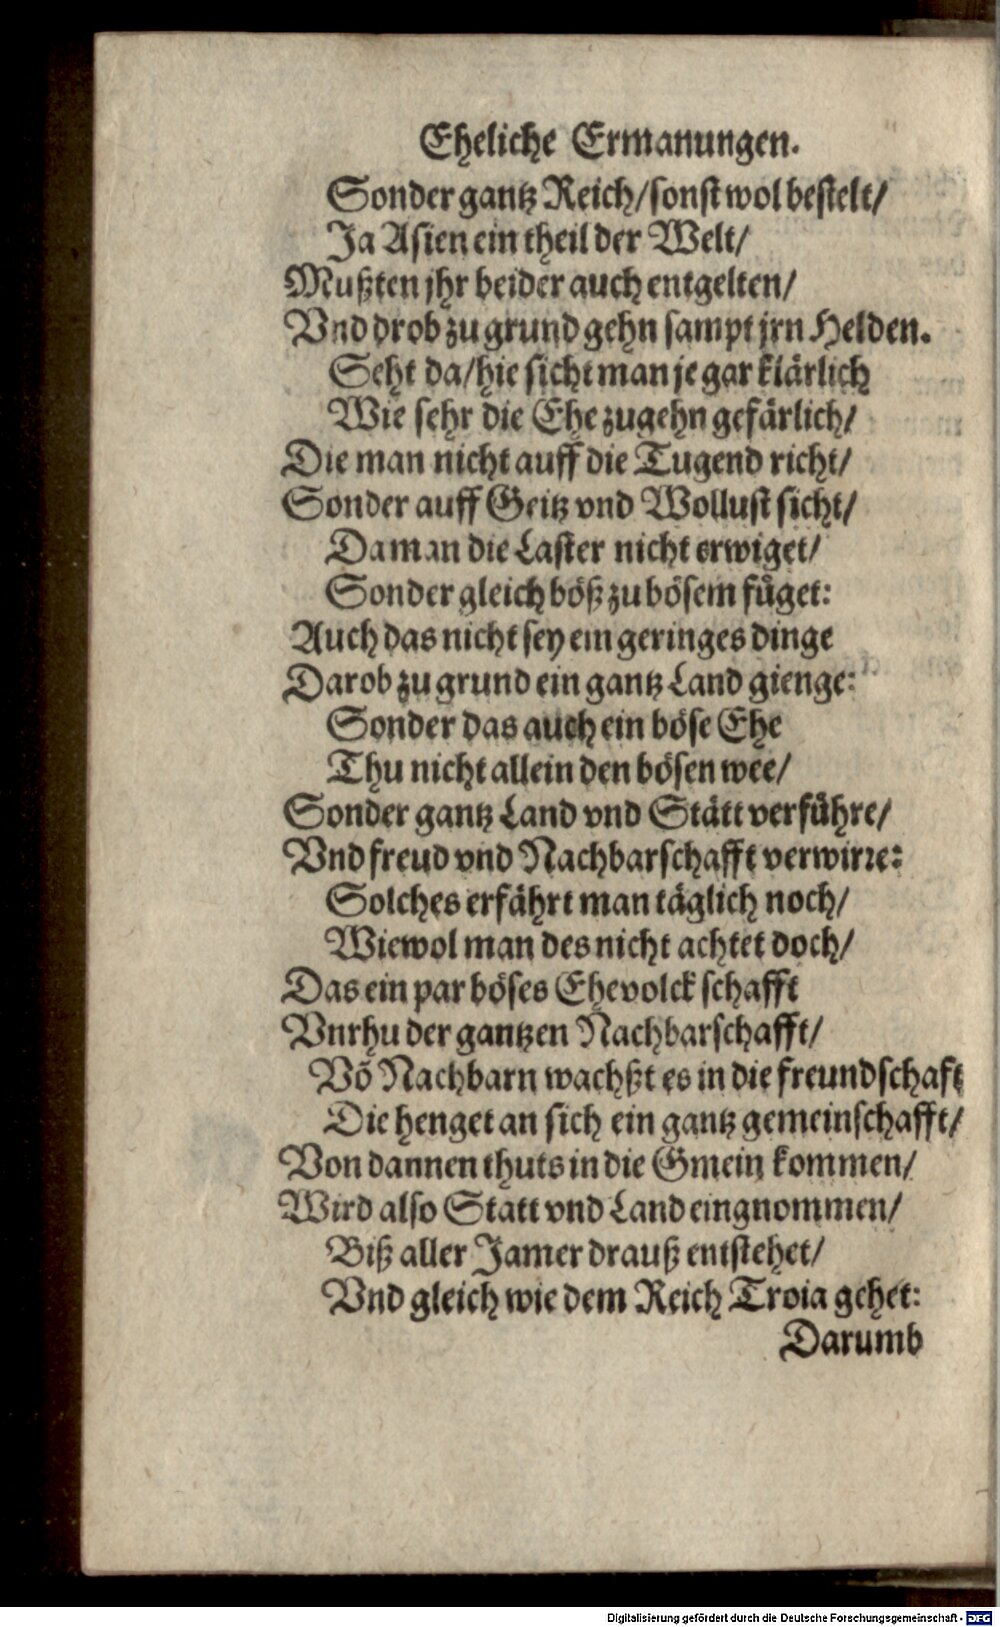 Eheliche Ermanungen.
Sonder gantz Reich/sonst wol bestelt/
Ja Asien ein theil der Welt/
Mußten jhr beider auch entgelten/
Vnd drob zu grund gehn sampt jrn Helden.
Seht da/hie sicht man je gar klärlich
Wie sehr die Ehe zugehn gefärlich/
Die man nicht auff die Tugend richt/
Sonder auff Geitz vnd Wollust sicht/
Da man die Laster nicht erwiget/
Sonder gleich böß zu bösem füget:
Auch das nicht sey ein geringes dinge
Darob zu grund ein gantz Land gienge:
Sonder das auch ein böse Ehe
Thu nicht allein den bösen wee/
Sonder gantz Land vnd Stätt verführe/
Vnd freud vnd Nachbarschafft verwirre:
Solches erfährt man täglich noch/
Wiewol man des nicht achtet doch/
Das ein par böses Ehevolck schafft
Vnrhu der gantzen Nachbarschafft/
Võ Nachbarn wachßt es in die freundschaft
Die henget an sich ein gantz gemeinschafft/
Von dannen thuts in die Gmein kommen/
Wird also Statt vnd Land eingnommen/
Biß aller Jamer drauß entstehet/
Vnd gleich wie dem Reich Troia gehet:
Darumb
Digitalisierung gefördert durch die Deutsche Forschungsgemeinschaft - DFG